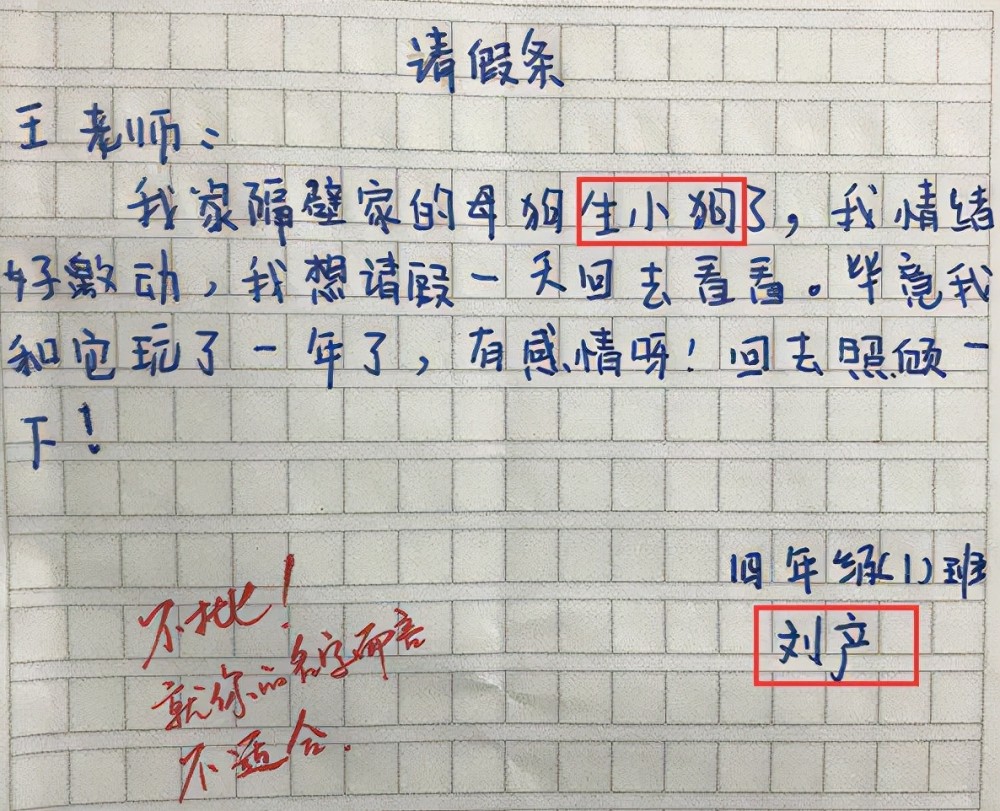 请假条
王老师:
我家隔壁家的母狗生小狗了,我情绪
好激动,我想请假一天回去看看。毕竟我
和它玩了一年了,有感情呀!回去照顾一
下!
四年级(1)班
刘产
不批!
就你的名字而言
不适合.